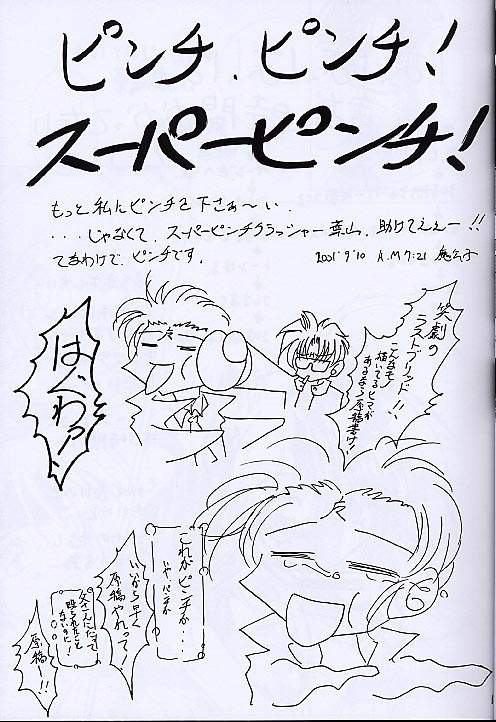 ピンチ、ピンチ！
スーパーピンチ！
もっと私にピンチを下さぁ〜い．
...じゃなくて、スーパーピンチクラッシャー葉山、助けてええー!!
てなわけで、ピンチです。 2001' 9'10 A.M 7:21
笑劇の
ラストブリッド!!
こんなモノ
描いてるヒマが
あるなら原稿書け!!
はぐわァッ
これが
ピンチか・・・
いや、パンチか
いいから早く
原稿やれって!
父さんにだって
殴られたこと
ないのに!
原稿ー!!